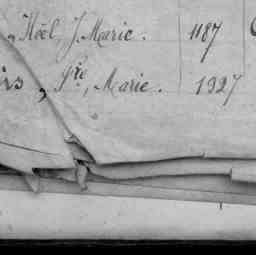 „ Noël, J. Marie. 1187
is, Pre, Marie. 1927